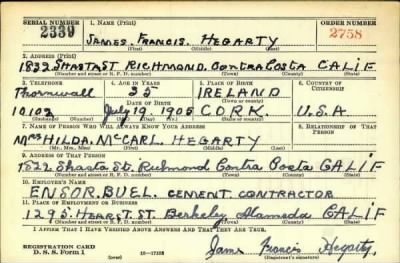 SERIAL NUMBER 1. NAME (Print) ORDER NUMBER
2339 JAMES. FRANCIS. HEGARTY 2758
(First) (Middle) (Last)
2. ADDRESS (Print)
1832 SHASTA ST RICHMOND. CONTRA COSTA CALIF
(Number and street or R. F. D. number) (Town) (County) (State)
3. TELEPHONE 4. AGE IN YEARS 5. PLACE OF BIRTH 6. COUNTRY OF CITIZENSHIP
Thornwall 35 IRELAND
DATE OF BIRTH (Town or county)
10102 July 19 1905 CORK. U.S.A
(Mo.) (Day) (Yr.) (State or country)
7. NAME OF PERSON WHO WILL ALWAYS KNOW YOUR ADDRESS 8. RELATIONSHIP OF THAT PERSON
Mrs HILDA. McCARL. HEGARTY
(Mr., Mrs., Miss) (First) (Middle) (Last)
9. ADDRESS OF THAT PERSON
1822 Shasta St. Richmond Contra Costa CALIF
(Number and street or R. F. D. number) (Town) (County) (State)
10. EMPLOYER'S NAME
ENSOR. BUEL. CEMENT. CONTRACTOR
11. PLACE OF EMPLOYMENT OR BUSINESS
1295. HEARST. ST. Berkeley Alameda CALIF
(Number and street or R. F. D. number) (Town) (County) (State)
I AFFIRM THAT I HAVE VERIFIED ABOVE ANSWERS AND THAT THEY ARE TRUE.
REGISTRATION CARD
D. S. S. Form 1 (over) 16—17105 James Francis Hegarty,
(Registrant's signature)